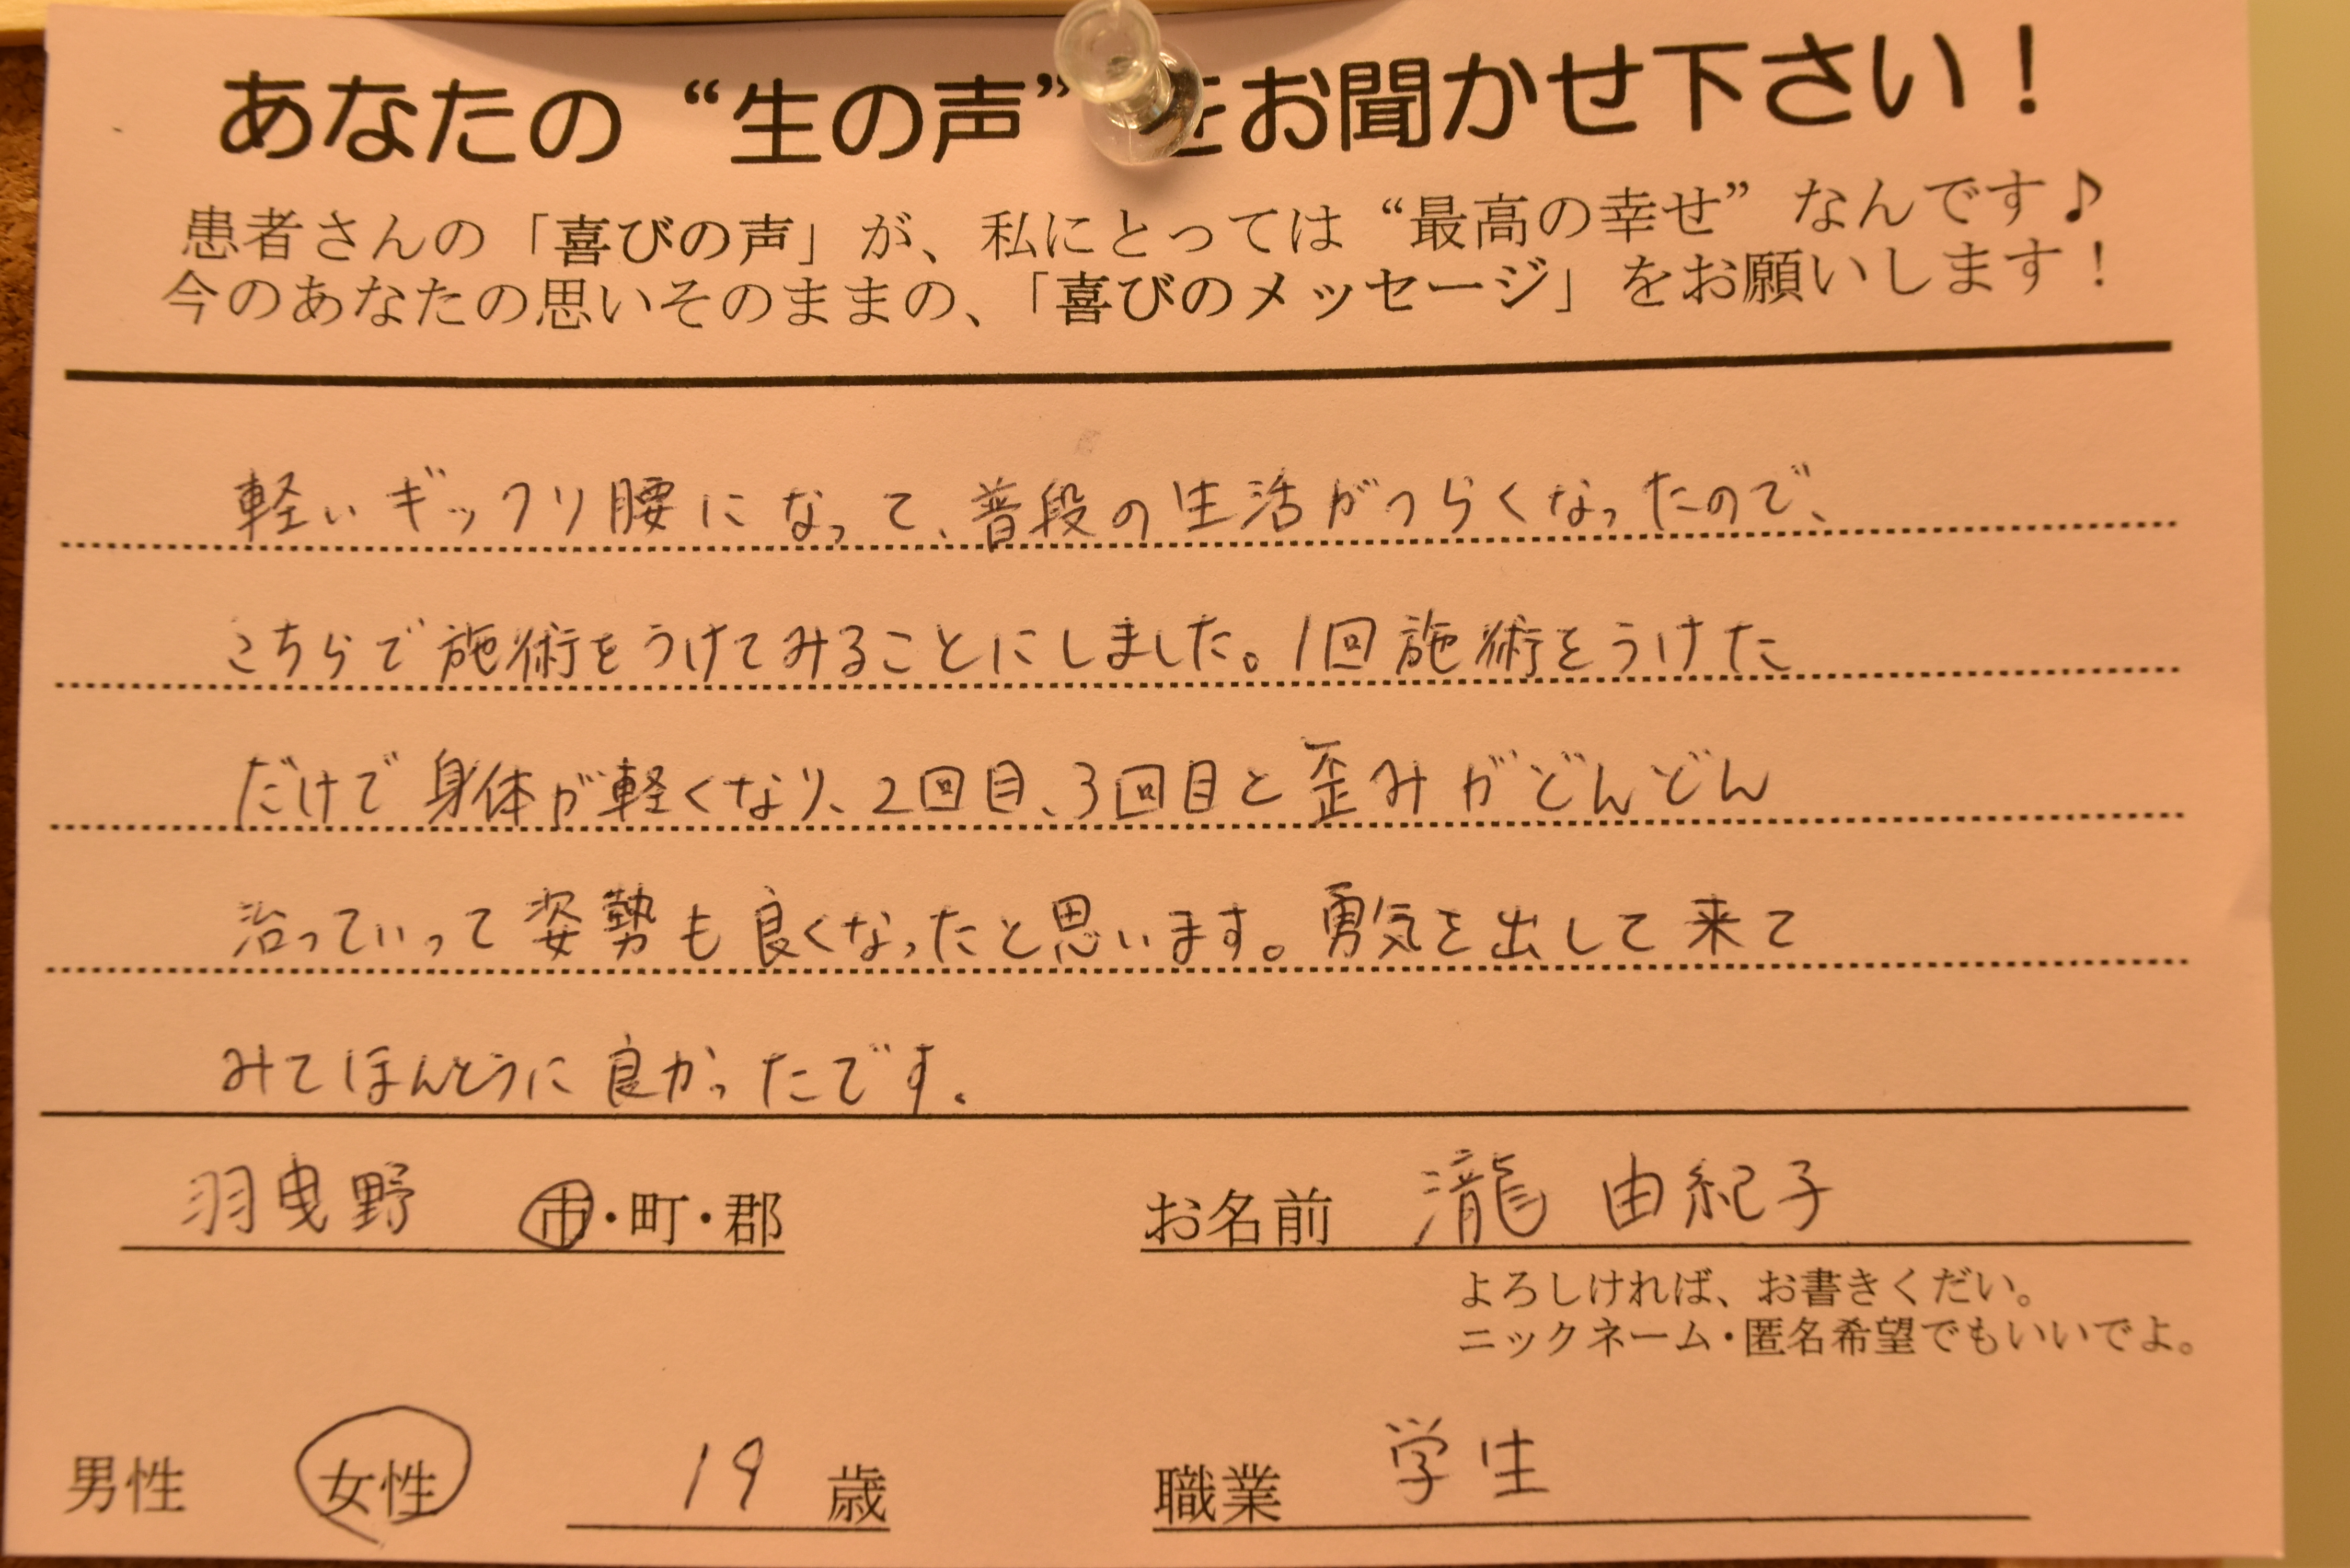 あなたの“生の声”をお聞かせ下さい！
患者さんの「喜びの声」が、私にとっては“最高の幸せ”なんです♪
今のあなたの思いそのままの、「喜びのメッセージ」をお願いします！
軽いギックリ腰になって、普段の生活がつらくなったので、
こちらで施術をうけてみることにしました。1回施術をうけた
だけで身体が軽くなり、2回目、3回目と歪みがどんどん
治っていって姿勢も良くなったと思います。勇気を出して来て
みてほんとうに良かったです。
羽曳野 市・町・郡 お名前 瀧 由紀子
よろしければ、お書きくだい。
ニックネーム・匿名希望でもいいでよ。
男性 女性 19 歳 職業 学生